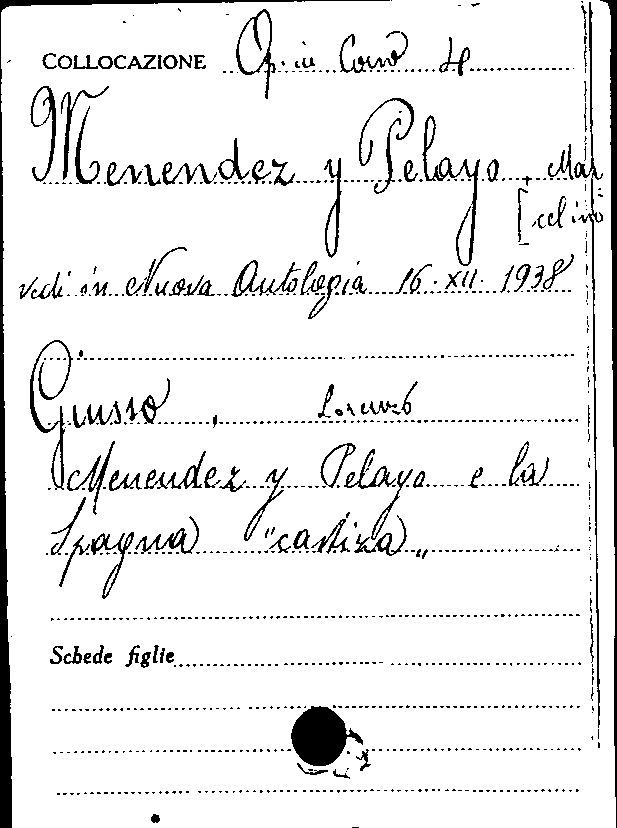 COLLOCAZIONE Op. in Corso 4
Menendez y Pelayo, Mar
[celino
vedi in Nuova Antologia 16.XII.1938
Giusso, Lorenzo
Menendez y Pelayo e la
Spagna "castiza"
Schede figlie